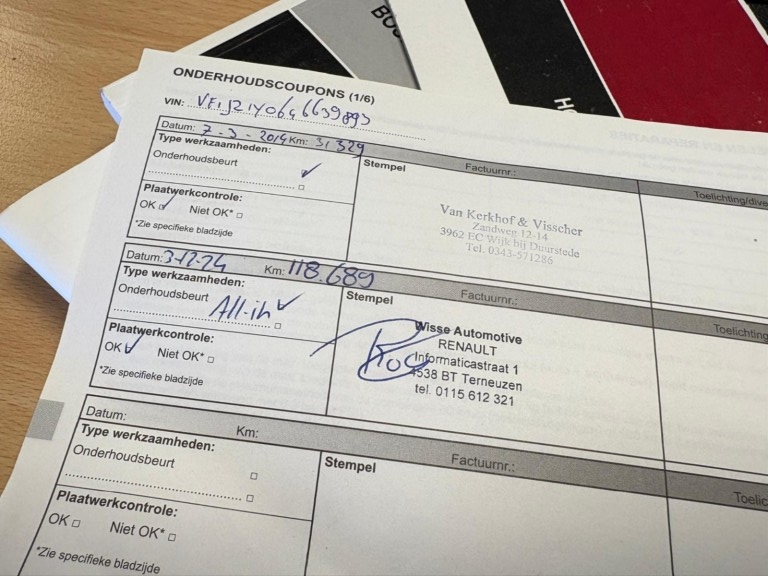 ONDERHOUDSCOUPONS (1/6)
VIN:
Datum: 7-3-2014 Km: 31329
Type werkzaamheden:
Onderhoudsbeurt
Plaatwerkcontrole:
OK Niet OK*
*Zie specifieke bladzijde
Stempel
Factuurnr.:
Toelichting/dive
Van Kerkhof & Visscher
Zandweg 12-14
3962 EC Wijk bij Duurstede
Tel. 0343-571286
Datum: 3-12-24 Km: 118.689
Type werkzaamheden:
Onderhoudsbeurt All-in
Plaatwerkcontrole:
OK Niet OK*
*Zie specifieke bladzijde
Stempel
Factuurnr.:
Toelichting
Wisse Automotive
RENAULT
Informaticastraat 1
4538 BT Terneuzen
tel. 0115 612 321
Datum: Km:
Type werkzaamheden:
Onderhoudsbeurt
Plaatwerkcontrole:
OK Niet OK*
*Zie specifieke bladzijde
Stempel
Factuurnr.:
Toelic